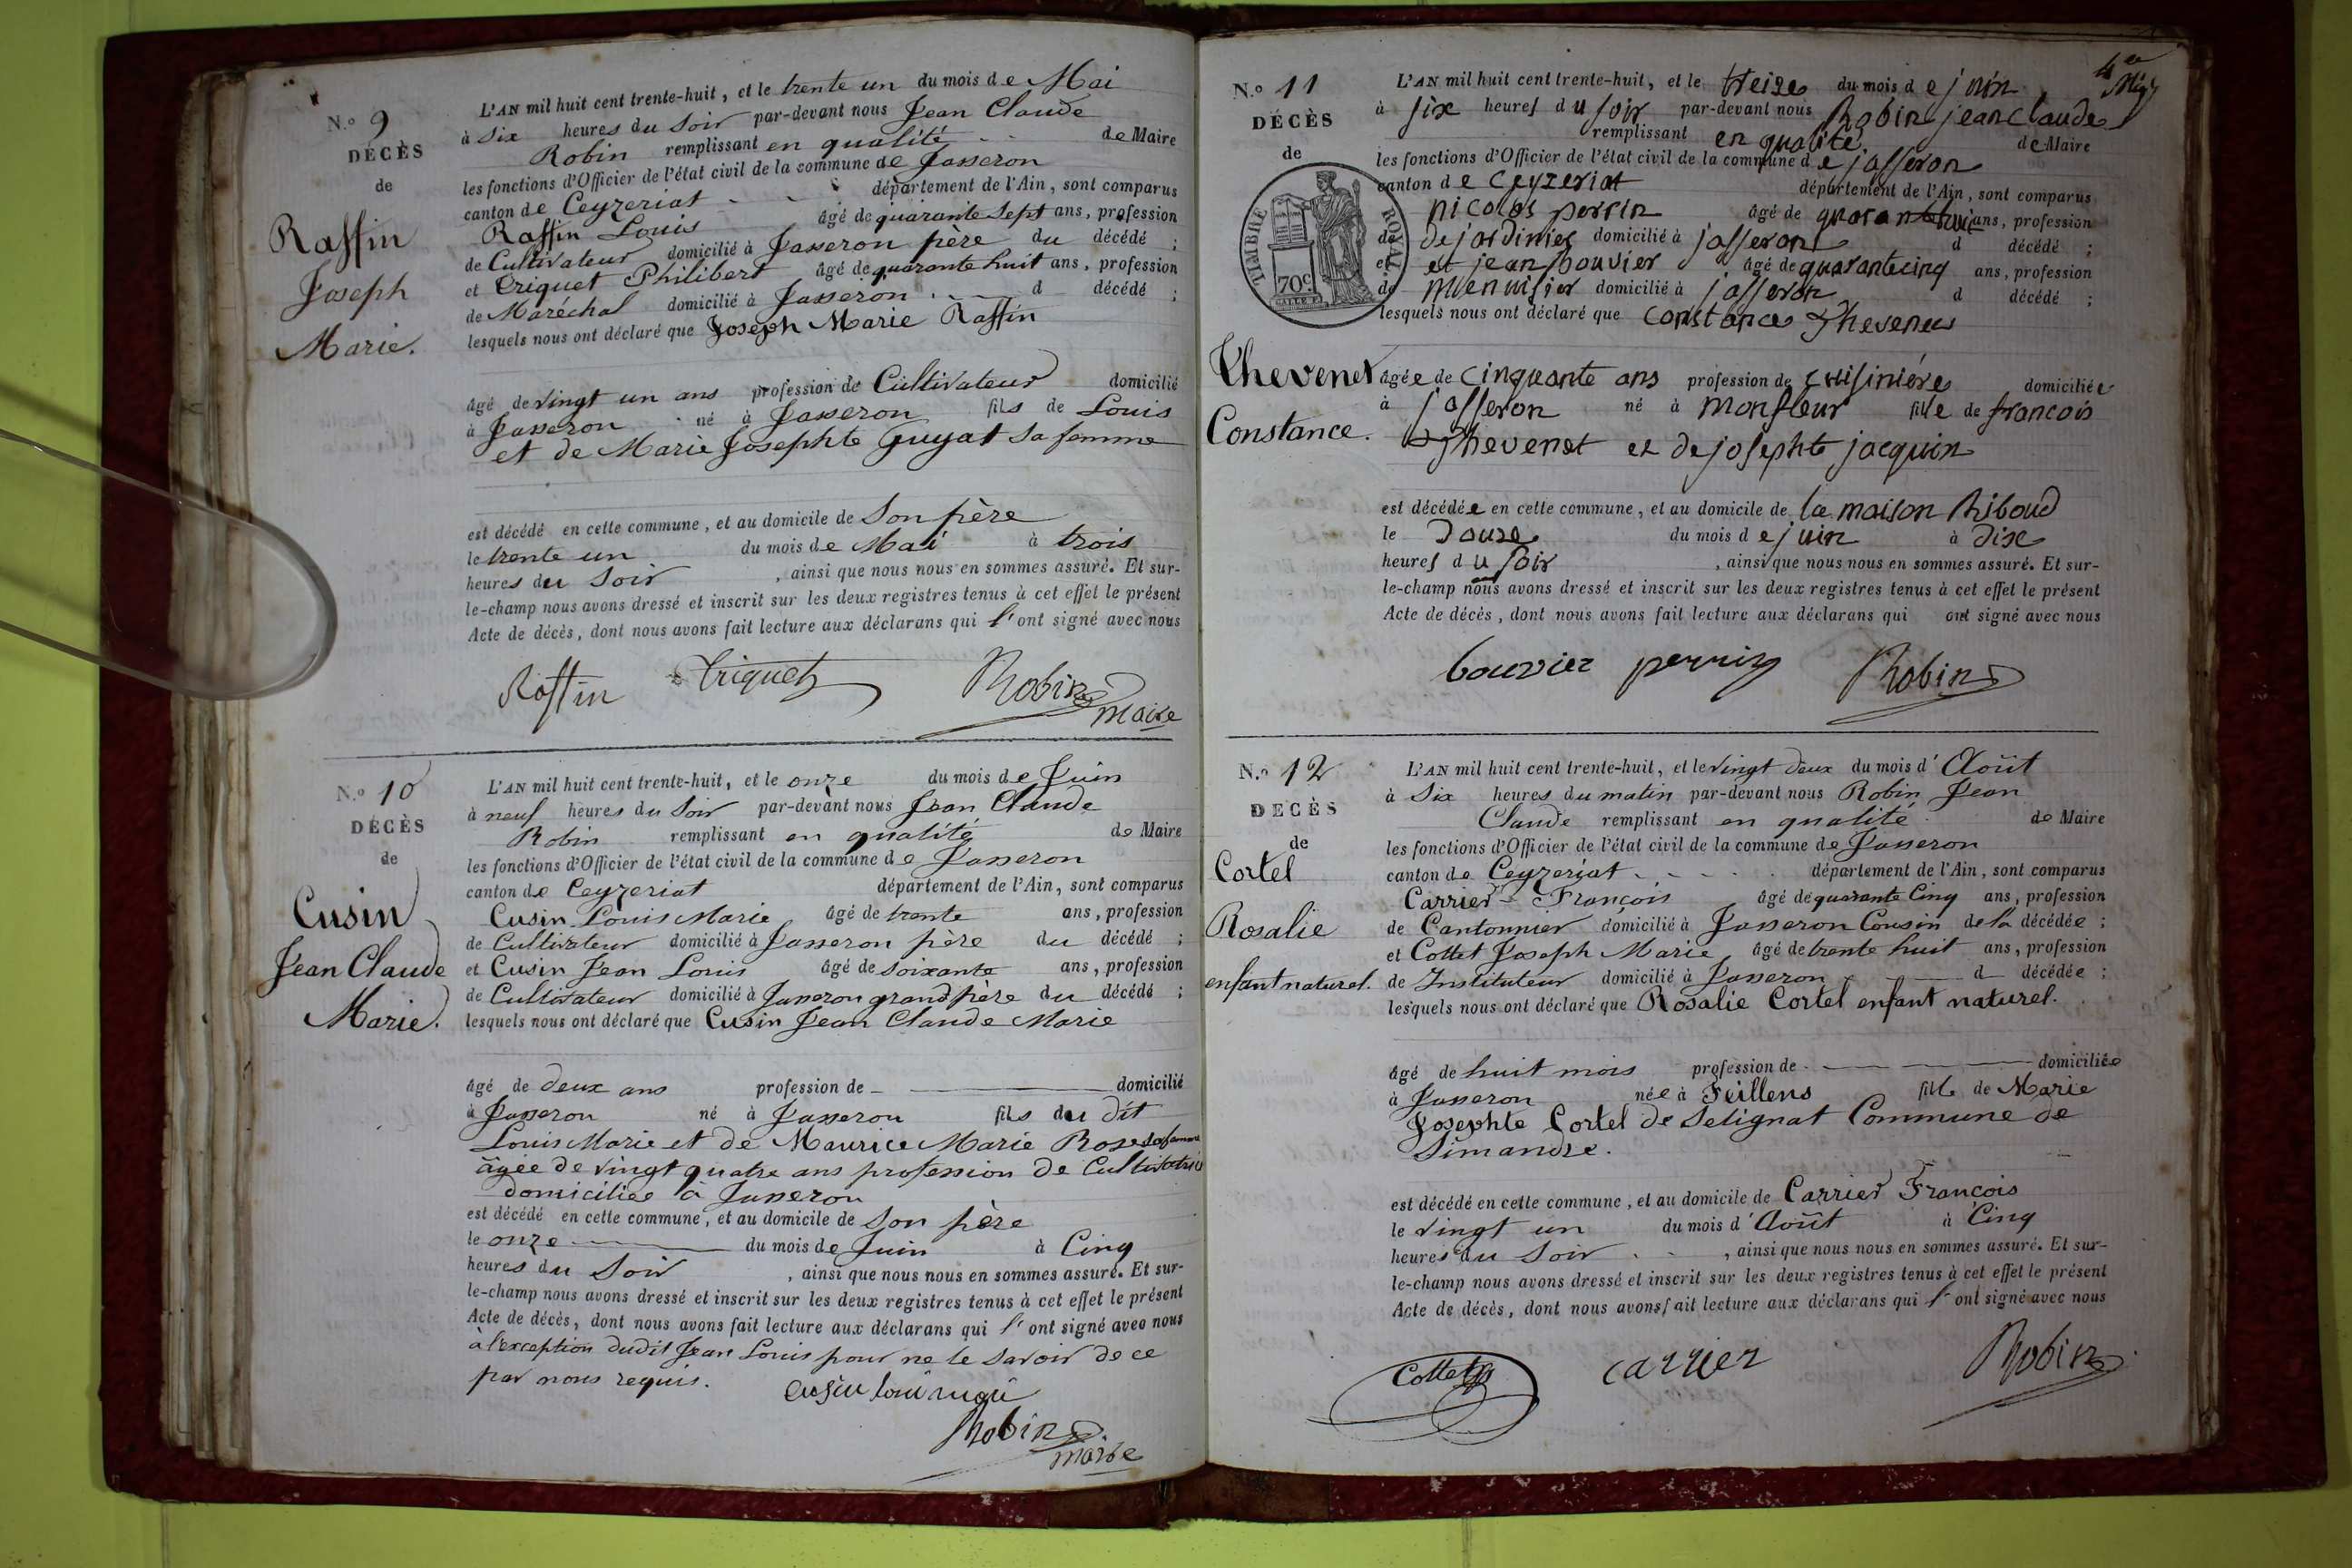 N.o 9
DÉCÈS
de
Raffin
Joseph
Marie.
L'AN mil huit cent trente-huit, et le trente un du mois de Mai
à six heures du soir par-devant nous Jean Claude
Robin remplissant en qualité de Maire
les fonctions d'Officier de l'état civil de la commune de Jasseron
canton de Ceyzeriat département de l'Ain, sont comparus
Raffin Louis âgé de quarante sept ans, profession
de Cultivateur domicilié à Jasseron père du décédé ;
et Criquet Philibert âgé de quarante huit ans, profession
de Maréchal domicilié à Jasseron d décédé ;
lesquels nous ont déclaré que Joseph Marie Raffin
âgé de vingt un ans profession de Cultivateur domicilié
à Jasseron né à Jasseron fils de Louis
et de Marie Josephte Guyat sa femme
est décédé en cette commune, et au domicile de son père
le trente un du mois de Mai à trois
heures du soir, ainsi que nous nous en sommes assuré. Et sur-
le-champ nous avons dressé et inscrit sur les deux registres tenus à cet effet le présent
Acte de décès, dont nous avons fait lecture aux déclarans qui l'ont signé avec nous
Raffin Criquet Robin
maire
N.o 10
DÉCÈS
de
Cusin
Jean Claude
Marie.
L'AN mil huit cent trente-huit, et le onze du mois de Juin
à neuf heures du soir par-devant nous Jean Claude
Robin remplissant en qualité de Maire
les fonctions d'Officier de l'état civil de la commune de Jasseron
canton de Ceyzeriat département de l'Ain, sont comparus
Cusin Louis Marie âgé de trente ans, profession
de Cultivateur domicilié à Jasseron père du décédé ;
et Cusin Jean Louis âgé de soixante ans, profession
de Cultivateur domicilié à Jasseron grand père du décédé ;
lesquels nous ont déclaré que Cusin Jean Claude Marie
âgé de deux ans profession de domicilié
à Jasseron né à Jasseron fils du dit
Louis Marie et de Maurice Marie Rose sa femme
âgée de vingt quatre ans profession de Cultivatrice
domiciliée à Jasseron
est décédé en cette commune, et au domicile de son père
le onze du mois de Juin à Cinq
heures du soir, ainsi que nous nous en sommes assuré. Et sur-
le-champ nous avons dressé et inscrit sur les deux registres tenus à cet effet le présent
Acte de décès, dont nous avons fait lecture aux déclarans qui l'ont signé avec nous
à l'exception dudit Jean Louis pour ne le savoir de ce
par nous requis.
cusin loui
Robin
maire
4e
N.o 11
DÉCÈS
de
TIMBRE ROYAL
70c
Thevenet
Constance.
L'AN mil huit cent trente-huit, et le treize du mois de juin
à six heures du soir par-devant nous Robin jean Claude
remplissant en qualité de Maire
les fonctions d'Officier de l'état civil de la commune de jasseron
canton de Ceyzeriat département de l'Ain, sont comparus
nicolas perrin âgé de quarante huit ans, profession
de de jardinier domicilié à jasseron d décédé ;
et et jean bouvier âgé de quarante cinq ans, profession
de menuisier domicilié à jasseron d décédé ;
lesquels nous ont déclaré que constance Thevenet
âgée de cinquante ans profession de cuisinière domiciliée
à jasseron né à monfleur fille de francois
Thevenet et de josephte jacquin
est décédée en cette commune, et au domicile de la maison Riboud
le Douze du mois de juin à dix
heures du soir, ainsi que nous nous en sommes assuré. Et sur-
le-champ nous avons dressé et inscrit sur les deux registres tenus à cet effet le présent
Acte de décès, dont nous avons fait lecture aux déclarans qui ont signé avec nous
bouvier perrin Robin
N.o 12
DÉCÈS
de
Cortel
Rosalie
enfant naturel.
L'AN mil huit cent trente-huit, et le vingt deux du mois d'Août
à six heures du matin par-devant nous Robin Jean
Claude remplissant en qualité de Maire
les fonctions d'Officier de l'état civil de la commune de Jasseron
canton de Ceyzeriat département de l'Ain, sont comparus
Carrier François âgé de quarante Cinq ans, profession
de Cantonnier domicilié à Jasseron Cousin de la décédée ;
et Cottet Joseph Marie âgé de trente huit ans, profession
de Instituteur domicilié à Jasseron d décédée ;
lesquels nous ont déclaré que Rosalie Cortel enfant naturel.
âgé de huit mois profession de domiciliée
à Jasseron née à Feillens fille de Marie
Josephte Cortel de Selignat Commune de
Simandre.
est décédé en cette commune, et au domicile de Carrier François
le vingt un du mois d'Août à Cinq
heures du soir, ainsi que nous nous en sommes assuré. Et sur-
le-champ nous avons dressé et inscrit sur les deux registres tenus à cet effet le présent
Acte de décès, dont nous avons fait lecture aux déclarans qui l'ont signé avec nous
Cottet carrier Robin